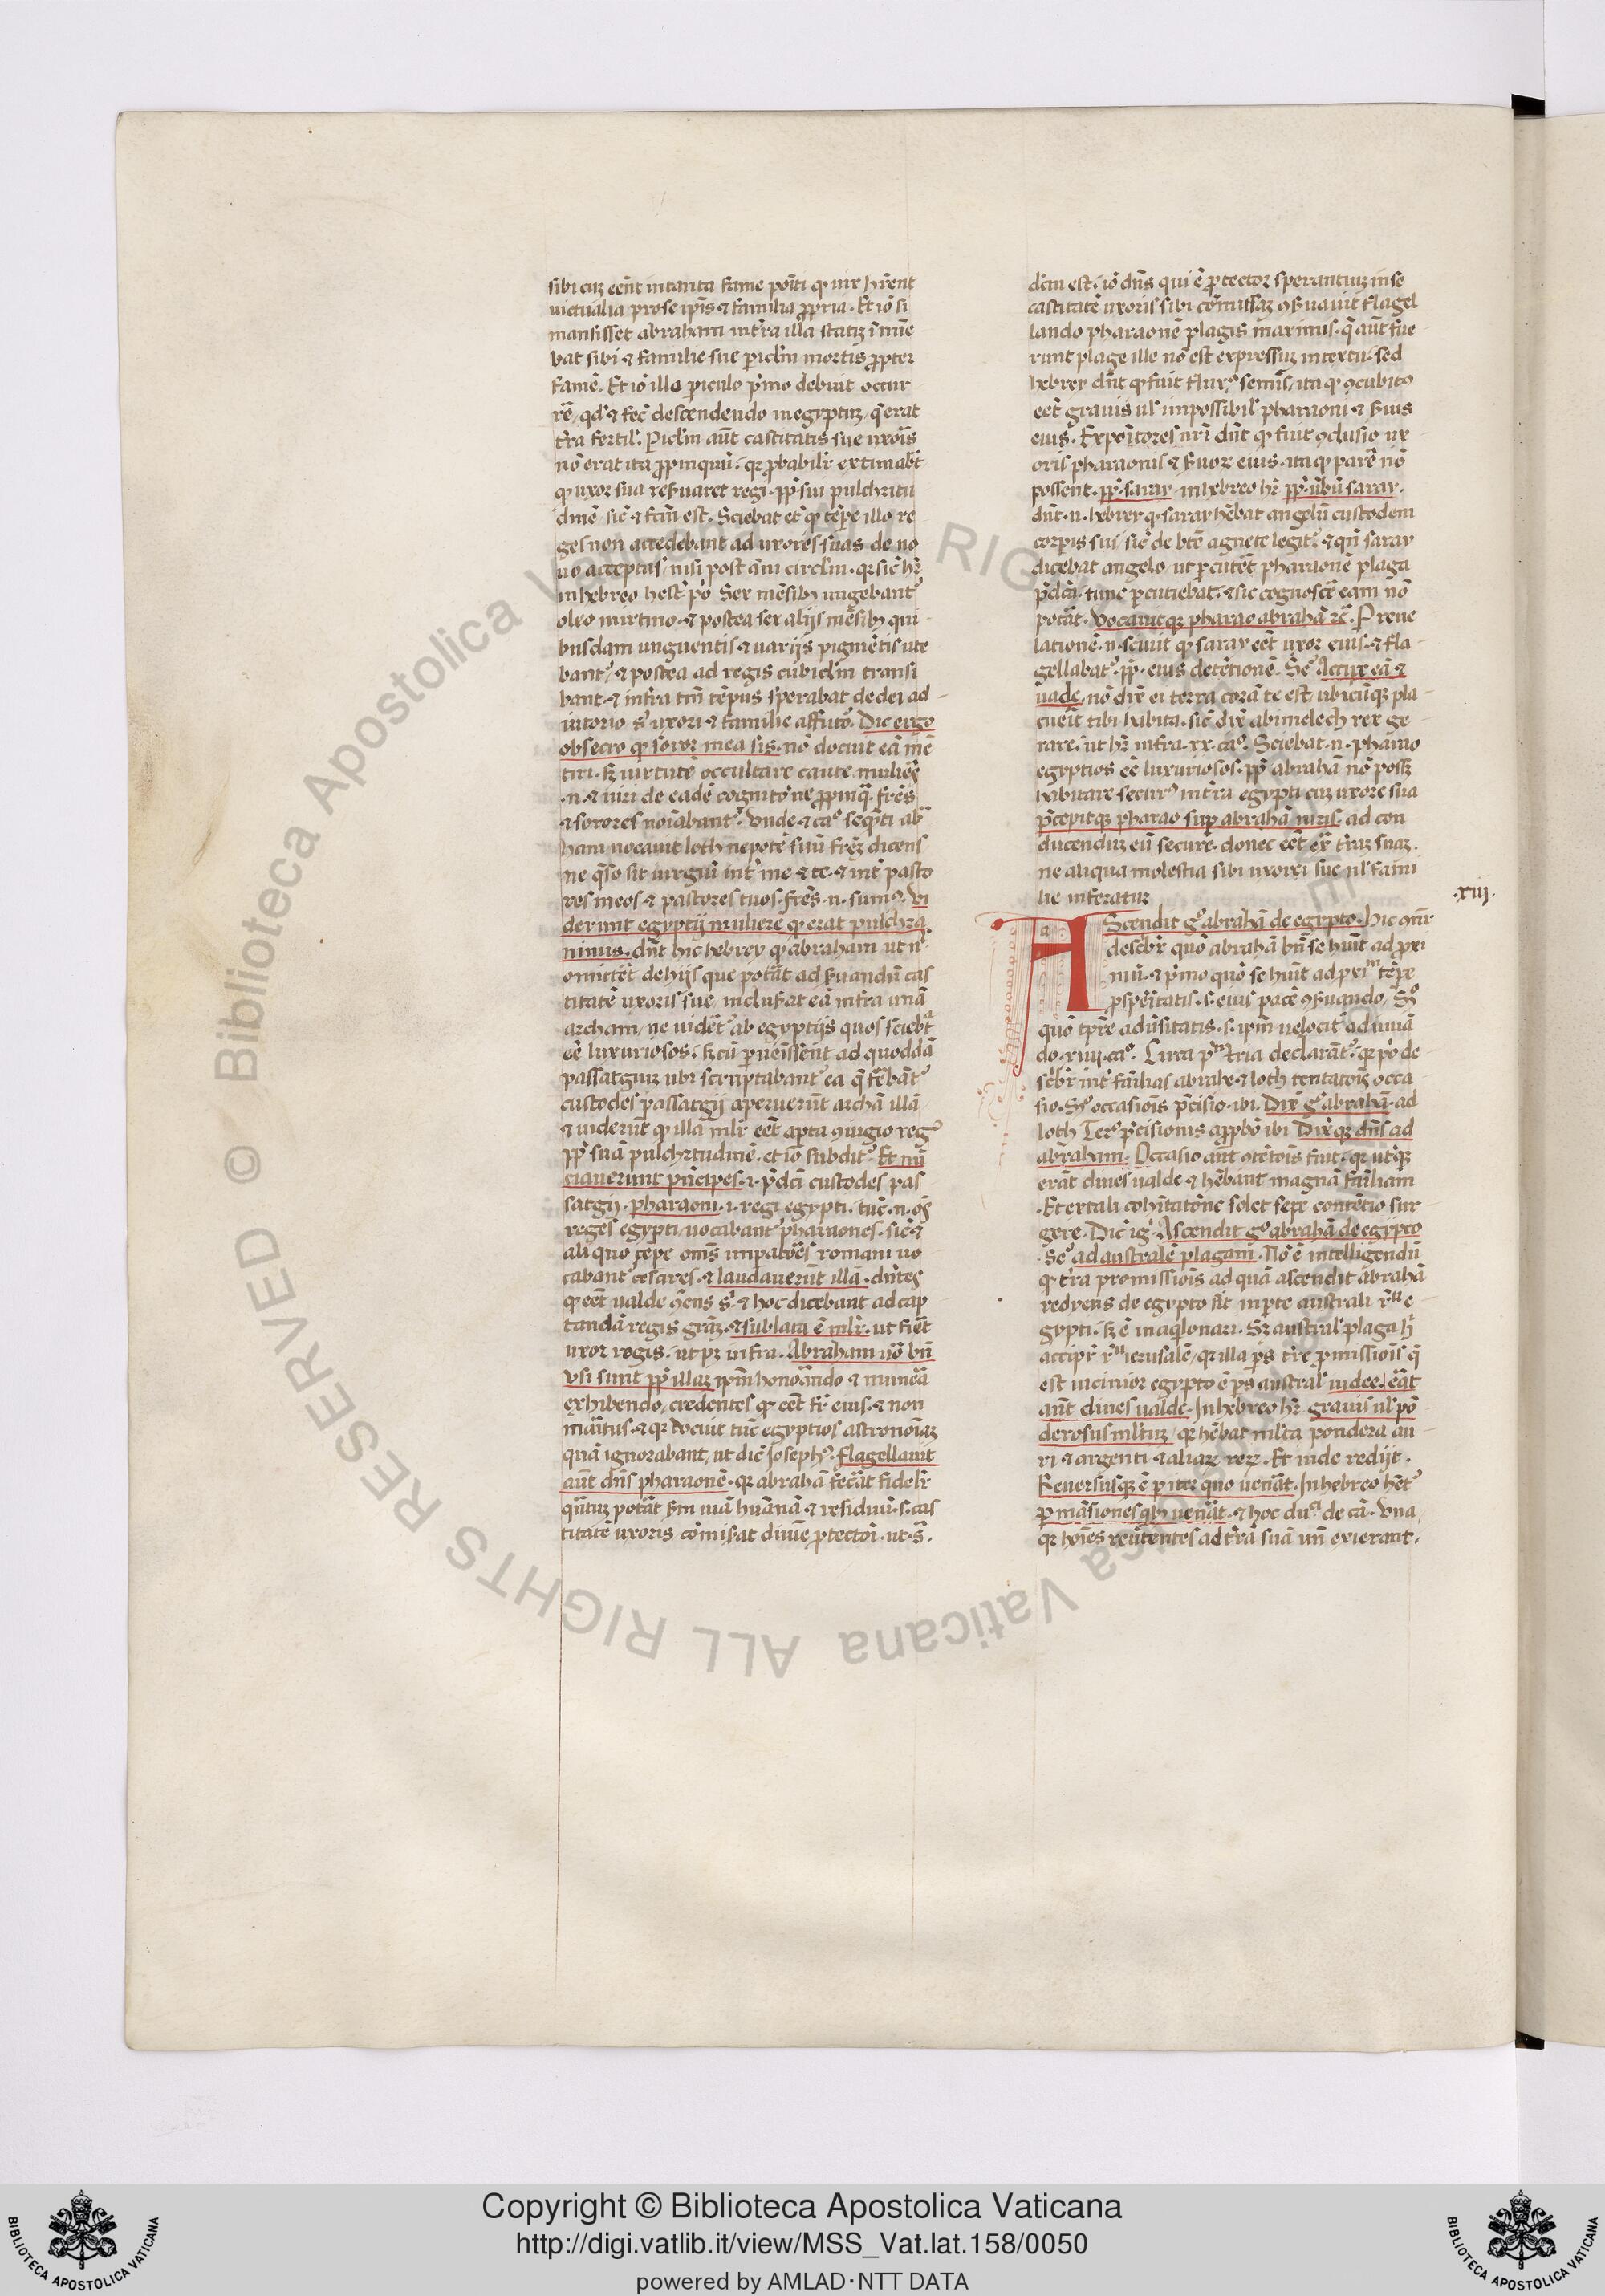 sibi cuz eēnt in tanta fame poīti qꝫ uix hr̄ent
uictualia pro se ip̄is ⁊ familia ꝓpria. Et iō si
mansisset abraham in t̄ra illa statiz īmīe
bat sibi ⁊ familie sue pericl̄m mortis ꝓpter
famē. Et iō illo periculo p̄mo debuit occur
rē, qd̓ ⁊ fec̄ descendendo in egyptuz, q̄ erat
t̄ra fertil̓. Pericl̄m aūt castitatis sue uxoris
nō erat ita ꝓpinquū. qꝛ ꝓbabilr̄ extimabat
qꝫ uxor sua res̓uaret̓ regi. ꝓp̄ sui pulchritu
dinē sic̄ ⁊ fcm̄ est. Sciebat et̓ qꝫ tēpe illo re
ges non accedebant ad uxores suas de no
uo acceptas, nisi post āni circl̄m. qꝛ sic̄ hr̄
in hebreo hest̓. pō Sex mēsibꝫ ungebant̓
oleo mirtino. ⁊ postea sex alijs mēsibꝫ qui
busdam unguentis ⁊ uarijs pigmētis ute
bant̓, ⁊ postea ad regis cubicl̄m transi
bant. ⁊ infra tm̄ tēpus sperabat de dei ad
iutorio s̓ uxori ⁊ familie affutō. Dic ergo
obsecro qꝫ soror mea sis. nō docuit eā mē
tiri. sꝫ uirtutē occultare caute. mulieres
.n. ⁊ uiri de eadē cognitōne ꝓpinqͣ. frēs
⁊ sorores noīabant̓. Unde ⁊ caº seqn̄ti abͣ
ham uocauit loth nepotē suū frēz dicens
ne q̄so sit iurgiū int̓ me ⁊ te. ⁊ int̓ pasto
res meos ⁊ pastores tuos. frēs .n. sumꝰ. Ui
derunt egyptij mulierē qꝫ erat pulchra
nimis. dn̄t hic hebrey qꝫ abraham ut n̓
omittēt de hijs que potāt ad s̓uandū cas
titatē uxoris sue, inclus̓at eā infra unā
archam, ne uidēt̓ ab egyptijs quos sciebat
eē luxuriosos. sꝫ cū peruēissent ad quoddā
passatgiuz ubi scruptabant̓ ea q̄ ferebāt̓
custodes passatgij aperuerūt archā illā
⁊ uiderūt qꝫ illa ml̓r eēt apta ꝯiugio regꝭ
ꝓp̄ suā pulchritudinē. et iō subdit̓ Et nū
ciauerunt principes. i. p̄dc̄i custodes pas
satgij. pharaoni. i. regi egypti. tūc .n. oēs
reges egypti, uocabant̓ pharaones. sic̄ ⁊
aliquo tēpe oms̄ impatōes romani uo
cabant̓ cesares. ⁊ laudauerūt illā. dn̄tes
qꝫ eēt ualde ꝯueniens s̓. ⁊ hoc dicebant ad cap
tandā regis grāz. ⁊ sublata ē ml̓r. ut fiēt
uxor regis. ut pꝫ infra. Abraham uō bn̄
usi sunt ꝓp̄ illaz ip̄m honorando ⁊ munera
exhibendo, credentes qꝫ eēt fr̄ eius. ⁊ non
maritus. ⁊ qꝛ docuit tūc egyptios astronomiaz
quā ignorabant, ut dic̄ Josephꝰ. flagellauit
aūt dn̄s pharaonē. qꝛ abrahā fecāt fidelr̄
qn̄tuz potāt s̄m uiā humanā ⁊ residuū .s. cas
titatē uxoris cōmis̓at diuīe ꝓtectōi. ut .s̓.
dc̄m est. iō dn̄s qui ē ꝓtector sperantiuz in se
castitatē uxoris sibi cōmissaz ꝯs̓uauit flagel
lando pharaonē plagis maximis. q̄ aūt fue
runt plage ille nō est expressuz in textu. sed
hebrey dn̄t qꝫ fuit fluxꝰ semīs, ita qꝫ ꝯcubitꝰ
eēt grauis ul̓ impossibil̓ pharaoni ⁊ s̓uis
eius. Expoītores nr̄i dn̄t qꝫ fuit ꝯclusio ux
oris pharaonis ⁊ s̓uoꝝ eius. ita qꝫ parē nō
possent. ꝓp̄. saray. in hebreo hr̄ ꝓp̄. ūbū saray.
dn̄t .n. hebrey qꝫ saray hēbat angelū custodem
corpis sui sic̄ de btē agnete legit̓. ⁊ qn̄ saray
dicebat angelo, ut percutēt pharaonē plaga
p̄dcā. tunc percutiebat. ⁊ sic cognoscē eam nō
potāt. Vocauitqꝫ pharao abrahā ⁊c̄. Per reue
lationē .n. sciuit qꝫ saray eēt uxor eius. ⁊ fla
gellabat̓. ꝓp̄. eius detētionē. Se⁊̓ Accipe eā ⁊
uade. nō dix̄ ei terra corā te est ubicūqꝫ pla
cueīt tibi habita. sic̄ dix̄ abimelech rex ge
rare. ut hr̄ infra .xx. caº. Sciebat .n. pharao
egyptios eē luxuriosos. ꝓp̄ abrahā nō possꝫ
habitare securꝰ in t̄ra egypti cuz uxore sua
p̄cepitqꝫ pharao suꝑ abrahā uiris. ad con
ducenduz eū secure. donec eēt ex̄ t̄raz suaz.
ne aliqua molestia sibi uxori sue ul̓ fami
lie inferatur
.xiij.
AScendit gº abrahā de egypto. hic ꝯn̄r
descibr̄ quō abrahā bn̄ se huīt ad ꝓxi
mū. ⁊ p̄mo quō se huīt ad ꝓximᵐ tēpe
ꝓsperitatis .s. eius pacē ꝯs̓uando, Sº
quō tpr̄e adūsitatis .s. ip̄m uelocit̓ adiuuā
do .xiiij. caº. Circa pᵐ tria declarāt̓. qꝛ pō de
scibr̄ int̓ familias abrahe ⁊ loth tentatōis occa
sio. Sº occasionis p̄cisio. ibi. Dix̄ gº abrahā. ad
loth Terº p̄cisionis apꝓbō ibi Dix̄qꝫ dn̄s ad
abraham. Occasio aūt ꝯtētōis fuit. qꝛ ut̓qꝫ
erāt diues ualde. ⁊ hēbant magnā familiam
.Et ex tali cohītatōne solet sepe contētio sur
gere. Dic̄ ig̓. Ascendit gº abrahā de egypto
.Seº ad australē plagam. Nō ē intelligendū
qꝫ t̄ra promissiois ad quā ascendit abrahā
redyens de egypto sit in ꝑte australi r̄ᵘ e
gypti. sꝫ ē in aqlonari. Sꝫ austral̓ plaga h̓
accipit̓ r̄ᵘ ierusalē, qꝛ illa ps t̄re ꝓmissiois q̄
est uicinior egypto ē ps austral̓ iudee. erāt
aūt diues ualde. In hebreo hr̄. grauis ul̓ pō
derosus ml̓tuz, qꝛ hēbat ml̓ta pondera au
ri ⁊ argenti ⁊ aliaꝝ reꝝ. Et inde redijt.
Reuersusqꝫ ē per iter quo ueneāt. In hebreo hēt̓
per māsiones qbꝫ ueneāt. ⁊ hoc du⁊̓ de cā. Una,
qꝛ hoīes reūtentes ad t̄rā suā un̄ exierant.
Copyright © Biblioteca Apostolica Vaticana
http://digi.vatlib.it/view/MSS_Vat.lat.158/0050
powered by AMLAD·NTT DATA
BIBLIOTECA APOSTOLICA VATICANA
BIBLIOTECA APOSTOLICA VATICANA
© Biblioteca Apostolica Vaticana ALL RIGHTS RESERVED